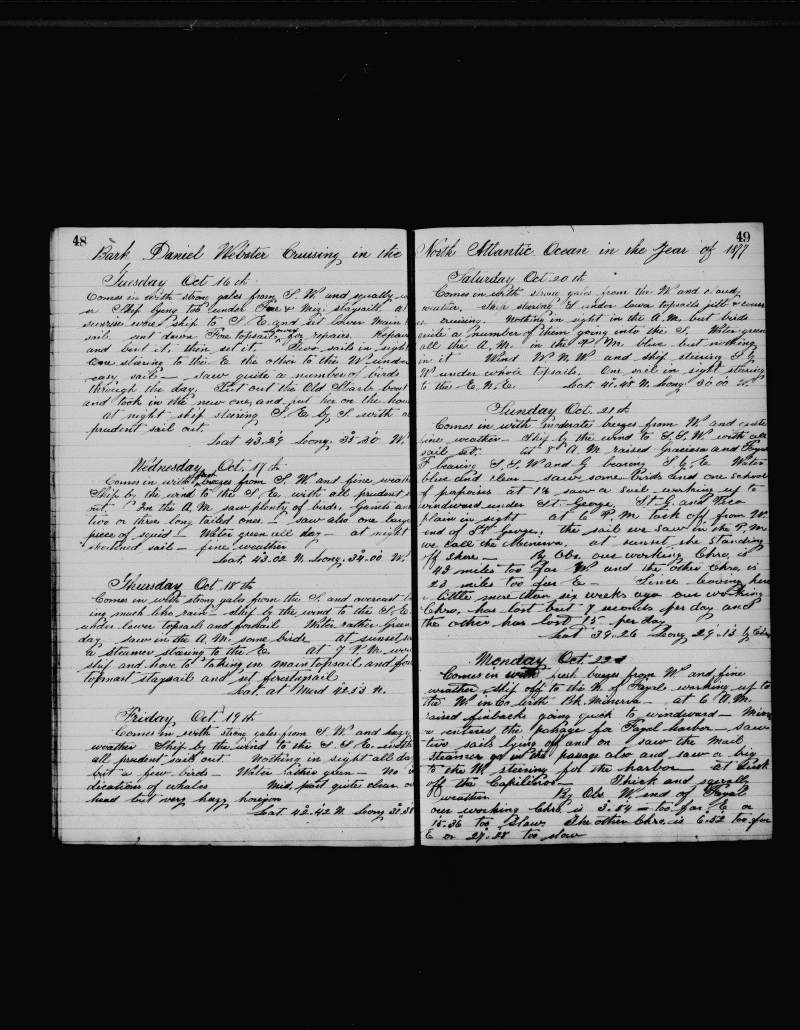 48
Bark Daniel Webster Cruising in the
Tuesday Oct 16th
Comes in with strong gales from S.W. and squally
Ship lying too under Fore & Miz. staysails. at
sunrise wore ship to S.E. and set lower main
sail, sent down Fore topsail for repairs. Repair
and bent it, then set it Two sails in sight
One stearing to the E the other to the W. under
easy sail — saw quite a number of birds
through the day. Got out the Old Starb. boat
and took in the new one, and put her on the
at night ship stearing S.E. by S. with a
prudent sail out.
Lat 43.29 Long. 35.30 W.
Wednesday Oct. 17th
Comes in with fresh breezes from S.W. and fine weath
Ship by the wind to the S.E. with all prudent s
out. In the A.M. saw plenty of birds. Ganets an
two or three long tailed ones. — saw also one large
piece of squid — Water green all day — at night
shortened sail — fine weather
Lat. 43.02 N. Long. 34.00 W.
Thursday Oct 18th
Comes in with strong gales from the S. and overcast
ing much like rain — ship by the wind to the S.E.
under lower topsails and foresail Water rather green
day. saw in the A.M. some birds at sunset s
a steamer stearing to the E. at 7 P.M. wor
ship and hove to taking in maintopsail and for
topmast staysail and set forestaysail
Lat at Merd 42.53 N.
Friday Oct. 19th
Comes in with strong gales from S.W. and hazy
weather Ship by the wind to the S.S.E. with
all prudent sail out. Nothing in sight all da
but a few birds — Water rather green — No in
dications of whales Mid. part quite clear o
head but very hazy horizon
Lat. 42.42 N. Long 31.38
49
North Atlantic Ocean in the Year of 1877
Saturday Oct 20th
Comes in with strong gales from the W and cloudy
weather, ship stearing S under lower topsails jibb & course
cruising. Nothing in sight in the A.M. but birds
quite a number of them going into the S. Water green
all the A.M. in the P.M. blue but nothing
in it Wind W.N.W and ship stearing S.E.
W under whole topsails. One sail in sight stearing
to the E.N.E. Lat. 41.48 N. Long. 30.00 W.
Sunday Oct. 21st
Comes in with moderate breezes from W and quite
fine weather — Ship by the wind to S.S.W. with all
sail set. at 8 A.M. raised Graciosa and Fayal
F bearing S.S.W and G bearing S.E.E Water
blue and clear — saw some Birds and one school
of porpoises at 1½ saw a sail working up to
windward under St. George. St. G. and Pico
plain in sight at 6 P.M. tack off from W.
end of St. George, the sail we saw in the P.M
we call the Minerva. at sunset she standing
off shore. By Obs. our working Chro. is
42 miles too far W and the other Chro. is
23 miles too far E — Since leaving here
a little more than six weeks ago our working
Chro. has lost but 7 seconds per day and
the other has lost 15 per day
Lat 39.26 Long 29.13 by Chro
Monday Oct. 22d
Comes in with fresh breezes from W. and fine
weather Ship off to the N. of Fayal working up to
the W. in Co. with Bk. Minerva — at 6 A.M.
raised finbacks going quick to windward — Miner
a entered the passage for Fayal harbor — saw
two sails lying off and on saw the Mail
Steamer go in the passage also and saw a big
to the W. steering for the harbor — at dusk
off the Capilinos — Thick and squally
weather By Obs W. end of Fayal
our working Chro. is 3.54 — too far E or
15.36 too Slow. The other Chro. is 6.52 too far
E or 27.28 too slow